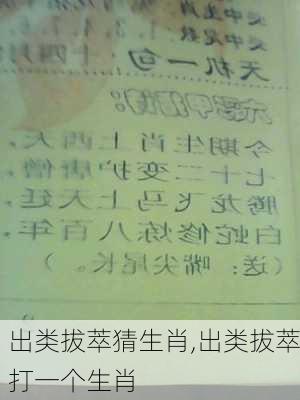 天机一句
今期生肖上西天，
七十二变护唐僧，
腾龙飞马上天廷，
白蛇修炼八百年，
（送：嘴尖尾长。）
出类拔萃猜生肖,出类拔萃
打一个生肖